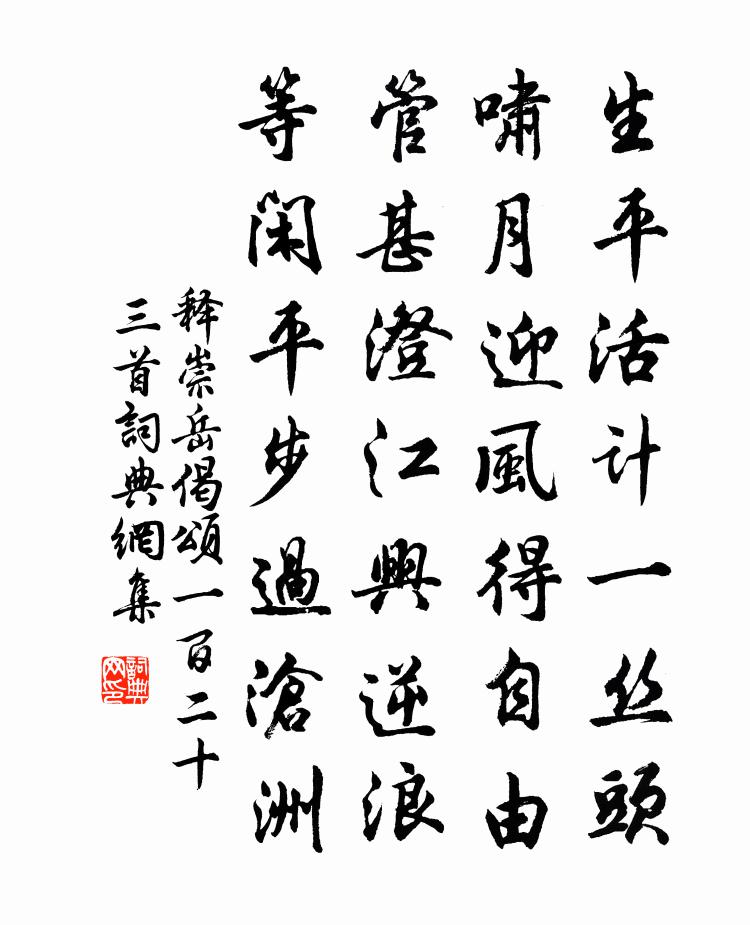 生平活計一丝頭
嘯月迎風得自由
管甚澄江興逆浪
等閑平步過滄洲
释崇岳偈頌一百二十
三首詞典網集
詞典网印